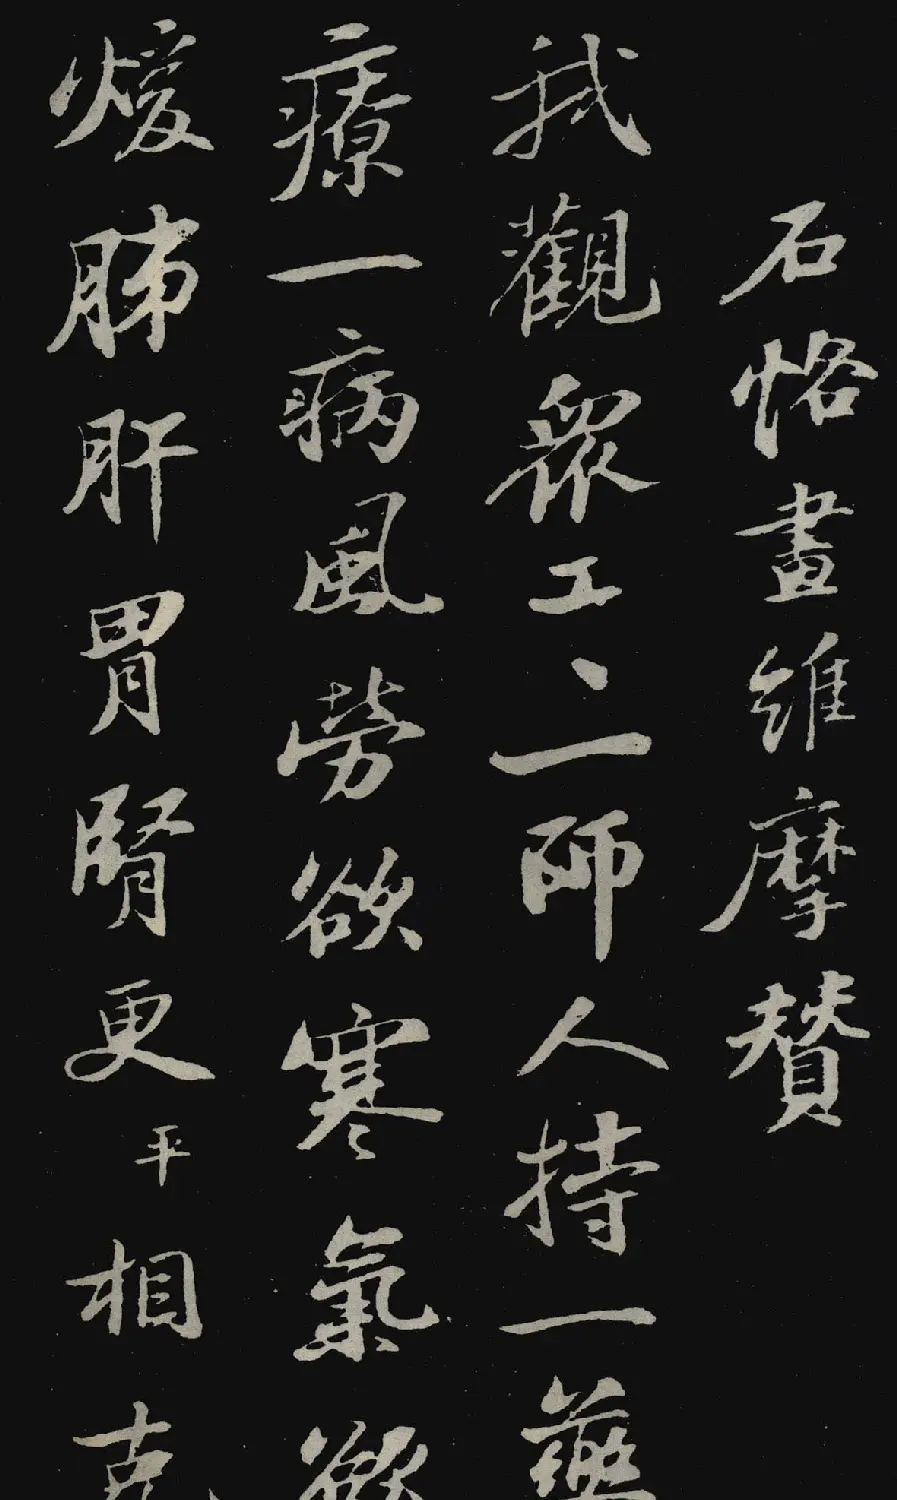 石恪畫維摩贊
我觀眾工々一師人持一藥
療一病風勞欲寒氣欲
煖肺肝胃腎更平相克